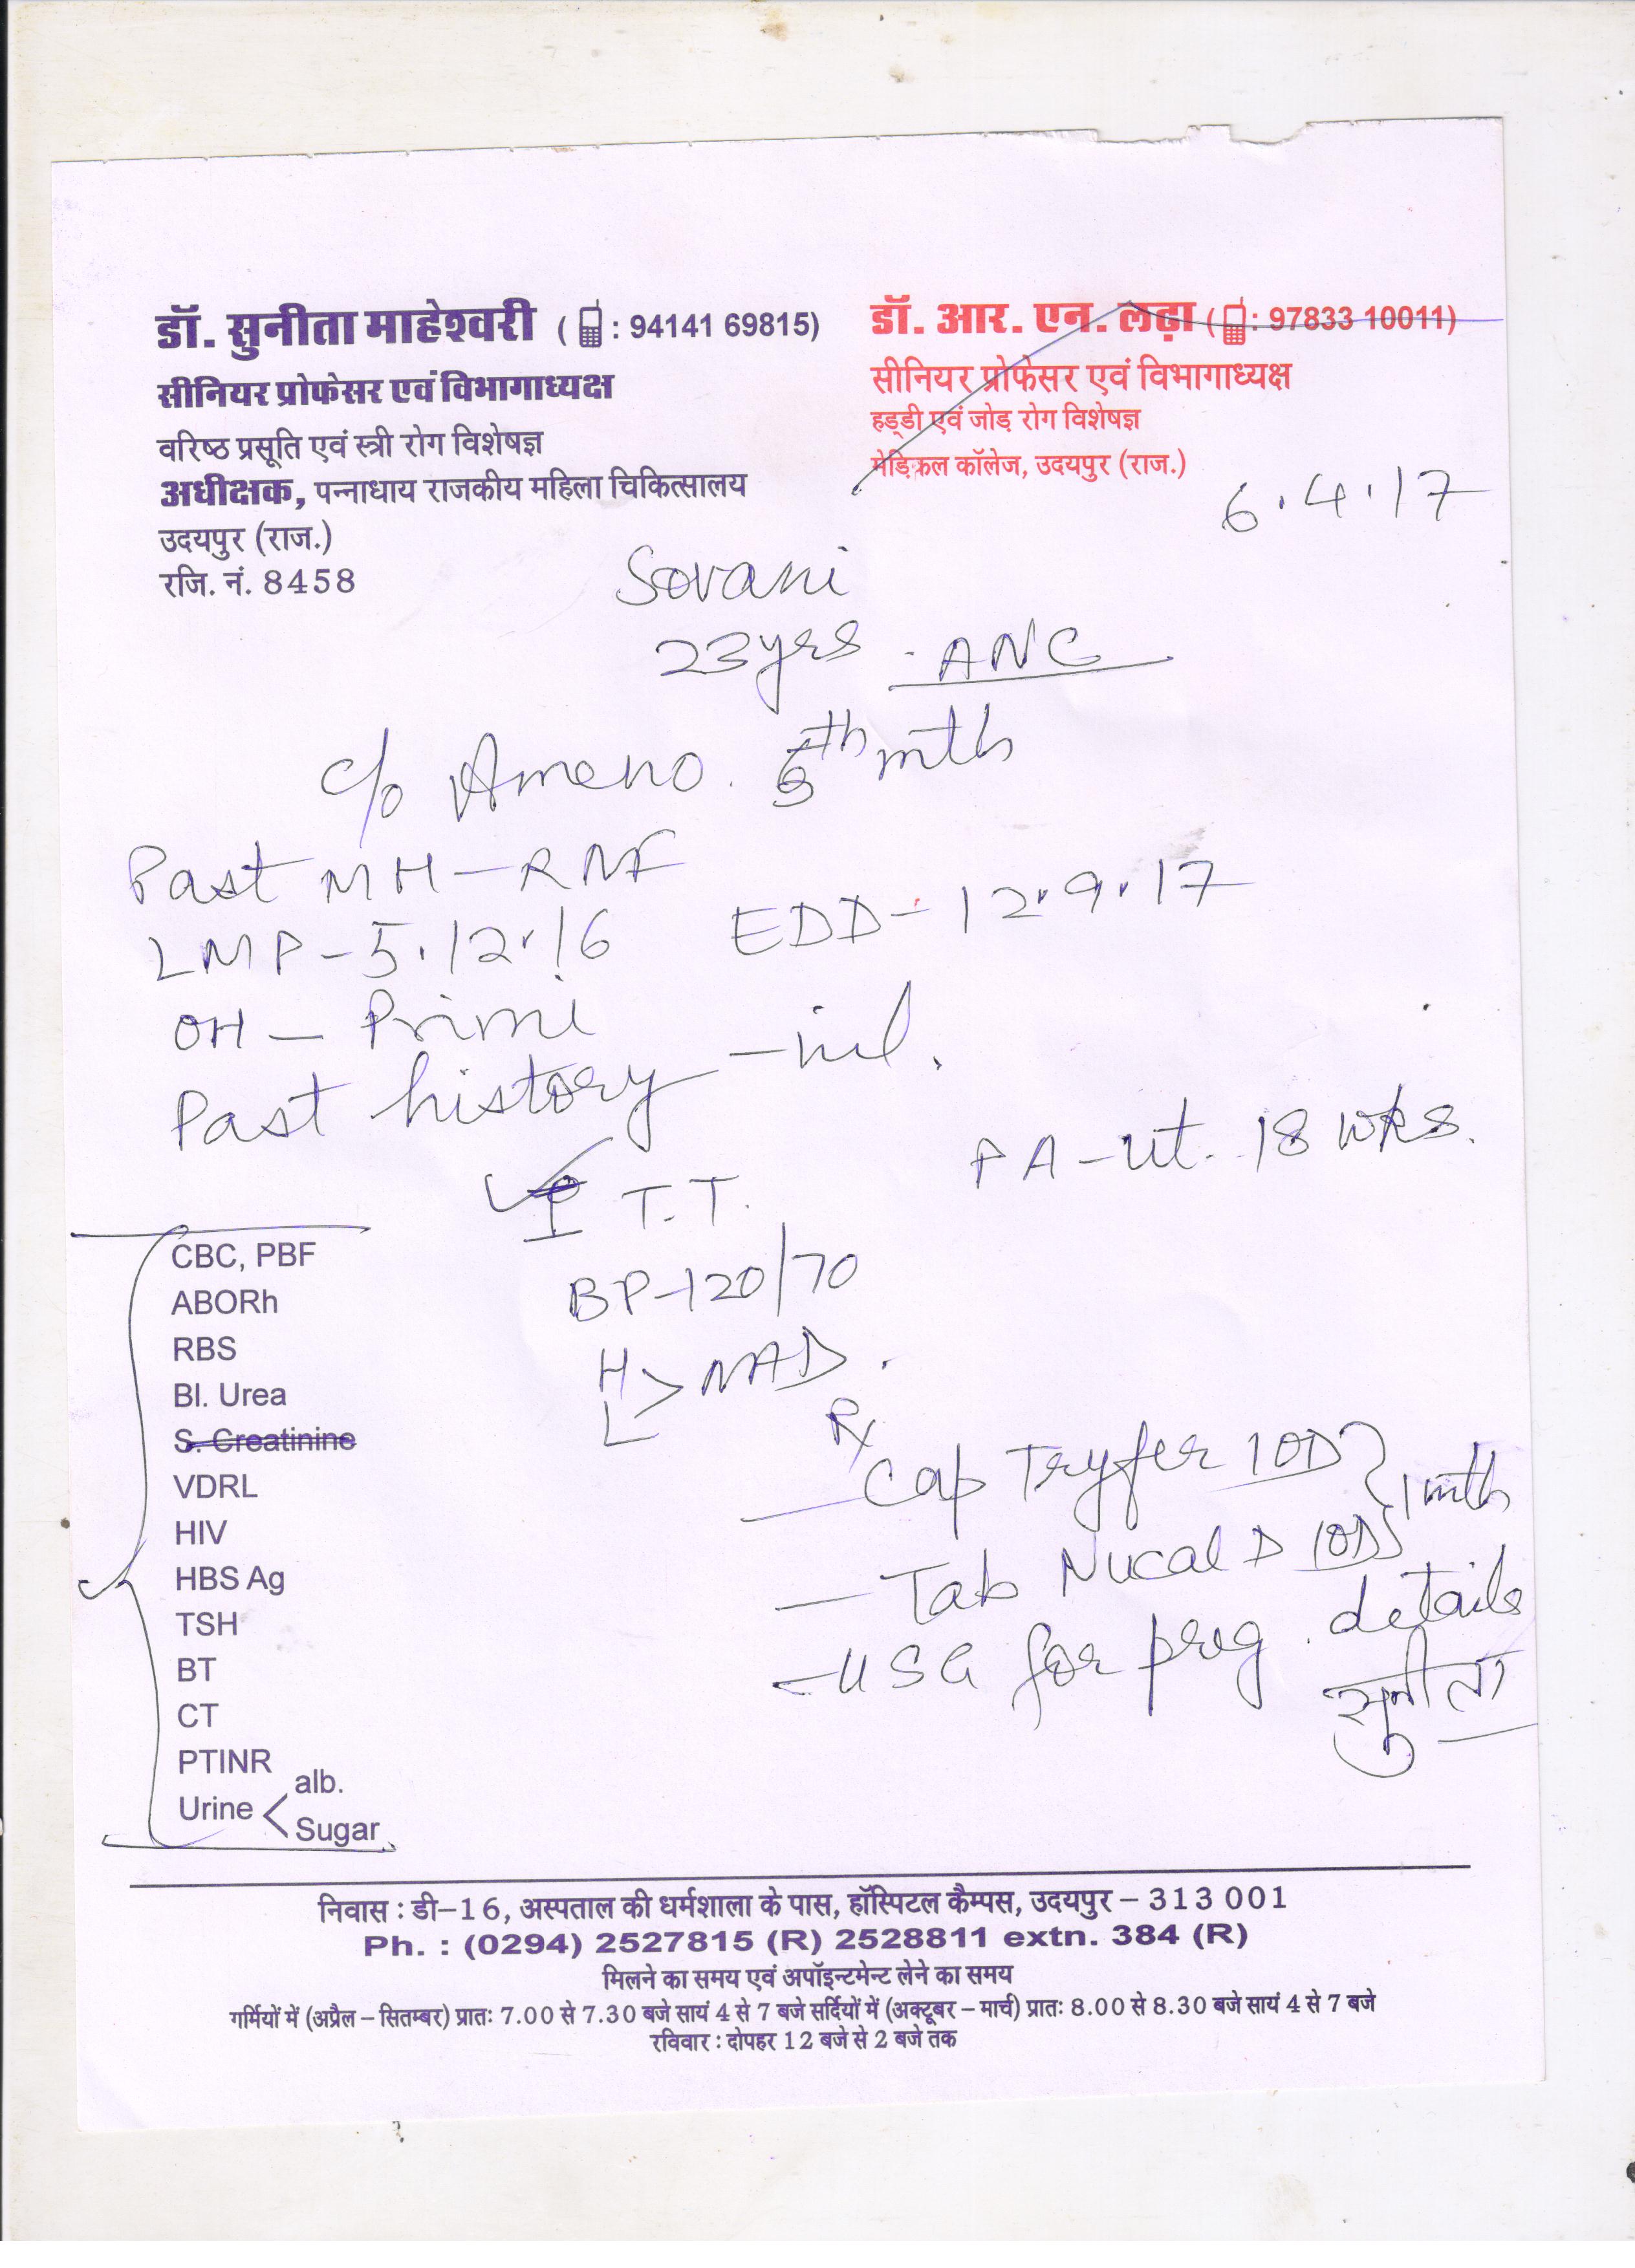 डॉ. सुनीता माहेश्वरी ( : 94141 69815)
सीनियर प्रोफेसर एवं विभागाध्यक्ष
वरिष्ठ प्रसूति एवं स्त्री रोग विशेषज्ञ
अधीक्षक, पन्नाधाय राजकीय महिला चिकित्सालय
उदयपुर (राज.)
रजि. नं. 8458
डॉ. आर. एन. लढ़ा ( : 97833 10011)
सीनियर प्रोफेसर एवं विभागाध्यक्ष
हड्डी एवं जोड़ रोग विशेषज्ञ
मेडिकल कॉलेज, उदयपुर (राज.)
6.4.17
Sovani
23yrs - ANC
c/o Ameno. 5th mth
Past MH - RNF
LMP - 5.12.16 EDD - 12.9.17
OH - Primi
Past history - nil.
PA - ut. 18 wks.
I T.T.
BP - 120/70
H
L > NAD.
Rx
Cap Tryfer 1OD
1 mth
- Tab Nucal D 1OD
- USG for preg. details
सुनीता
CBC, PBF
ABORh
RBS
Bl. Urea
S. Creatinine
VDRL
HIV
HBS Ag
TSH
BT
CT
PTINR
Urine < alb.
Sugar
निवास : डी-16, अस्पताल की धर्मशाला के पास, हॉस्पिटल कैम्पस, उदयपुर - 313 001
Ph. : (0294) 2527815 (R) 2528811 extn. 384 (R)
मिलने का समय एवं अपॉइन्टमेन्ट लेने का समय
गर्मियों में (अप्रैल - सितम्बर) प्रातः 7.00 से 7.30 बजे सायं 4 से 7 बजे सर्दियों में (अक्टूबर - मार्च) प्रातः 8.00 से 8.30 बजे सायं 4 से 7 बजे
रविवार : दोपहर 12 बजे से 2 बजे तक